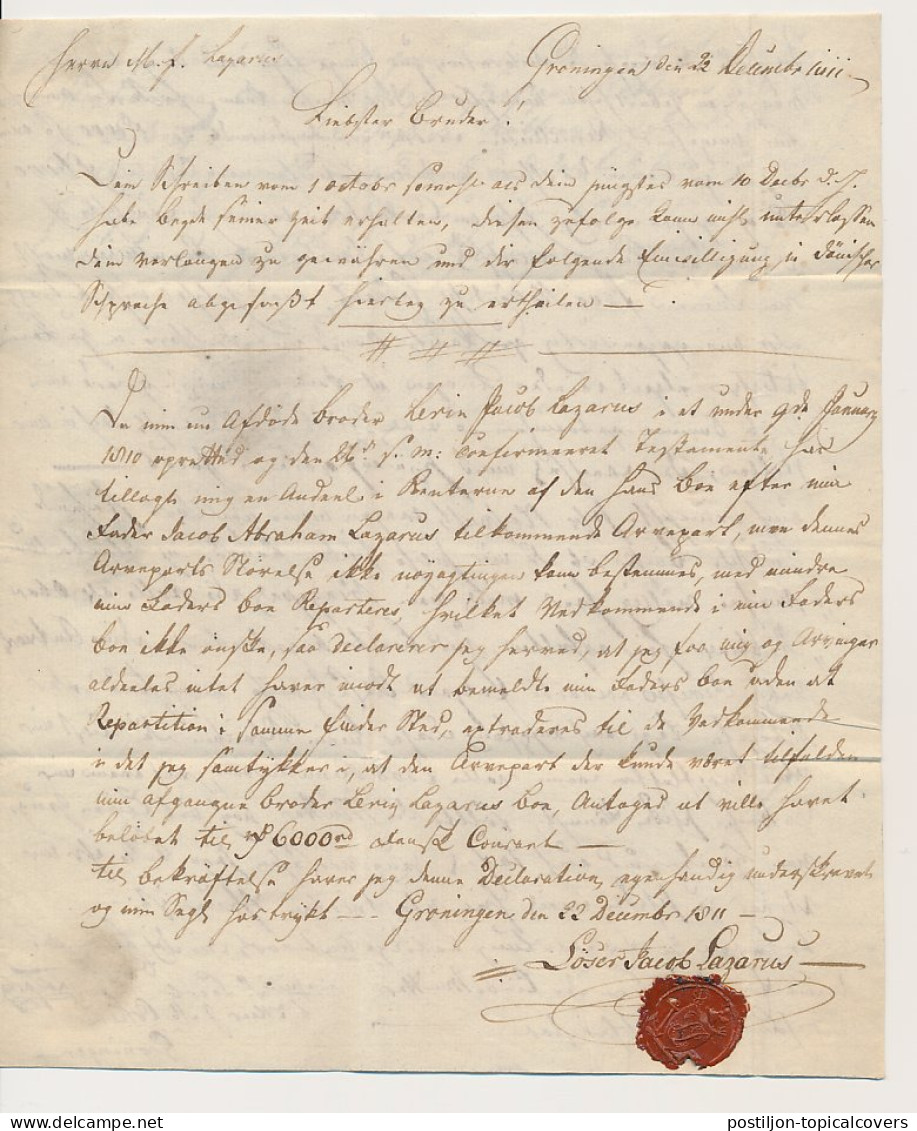 Herrn M. J. Lazarus Groningen den 22 Decembr 1811
Liebster Bruder!
Dein Schreiben vom 1 octobr sowohl als dein jüngstes vom 10 Decbr d. J.
habe beyde seiner zeit erhalten, diesen zufolge kann nicht unterlassen
dein verlangen zu gewähren und die folgende Einwilligung in dänischer
Sprache abgefaßt hierbey zu ertheilen —
Da min nu Afdøde broder Levin Jacob Lazarus i et under 9de January
1810 opretted og den 26d s. m: Confirmeeret Testamente har
tillagt mig en Andeel i Renterne af den hans boe efter min
Fader Jacob Abraham Lazarus tilkommende Arvepart, men dennes
Arveparts Størelse ikke nøyagtingen kan bestemmes, med mindre
min Faders boe Reparteres, hvilket Vedkommende i min Faders
boe ikke ønske, saa Declarerer jeg herved, at jeg for mig og Arvinger
aldeeles intet haver imodt at bemeldte min Faders boe uden at
Repartition i samme finder Sted, extraderes til de Vedkommende
i det jeg samtykker i, at den Arvepart der kunde været tilfalden
min afgangne broder Levin Lazarus boe, Antages at ville havet
beløbet til 6000 rd dansk Courant —
til bekræftelse haver jeg denne Declaration, egenhændig underskrevet
og min Segl hostrykt — Groningen den 22 Decembr 1811 —
Löser Jacob Lazarus
postiljon-topicalcovers